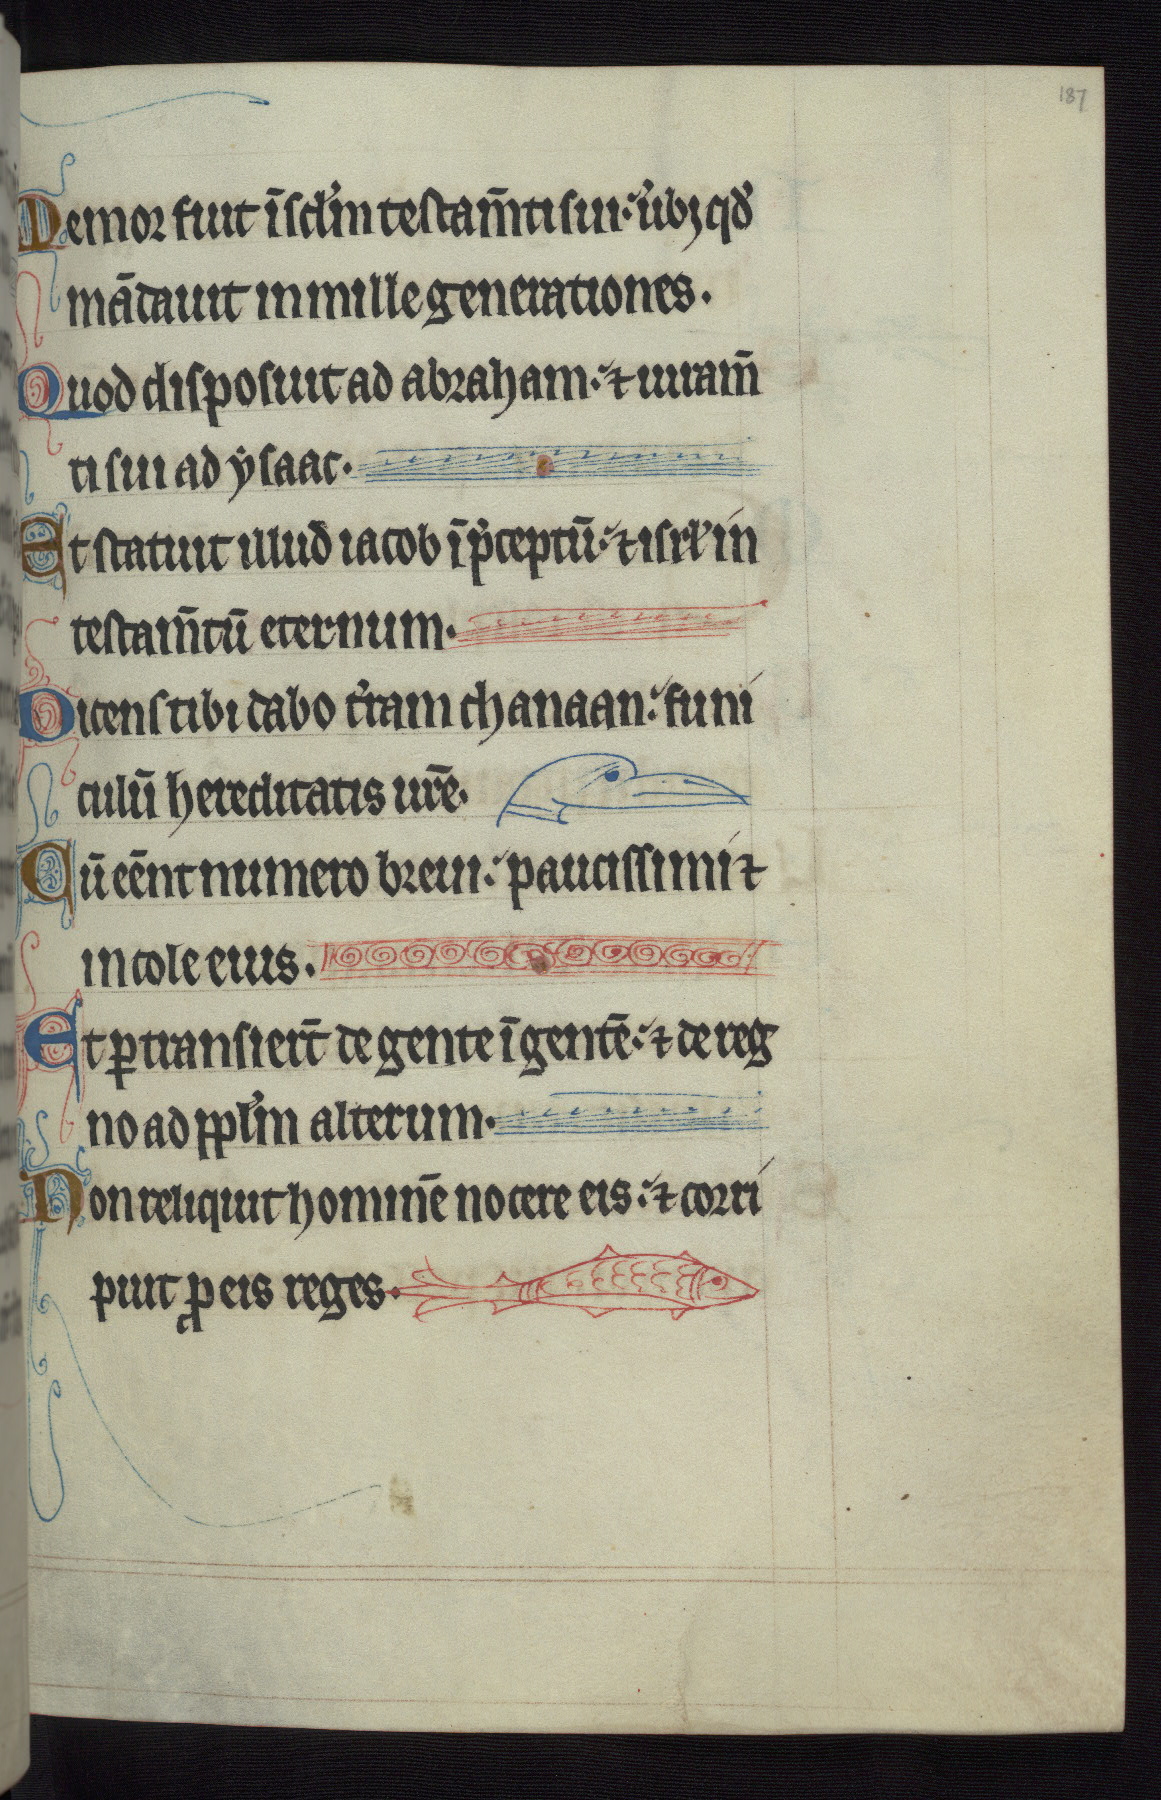 187
Memor fuit ī sclm̄ testam̄ti sui: ūbꝫ qđ
mādauit in mille generationes.
Quod disposuit ad abraham: ⁊ iuram̄
ti sui ad ẏsaac.
Et statuit illud̄ iacob ī p̄ceptū: ⁊ isrł in
testam̄tū eternum.
Dicens tibi dabo t̄ram chanaan: funi
culū hereditatis ur̄e.
Cū eēnt numero breui: paucissimi ⁊
incole eius.
Et ꝑtransier̄t de gente ī gentē: ⁊ de reg
no ad pplm̄ alterum.
Non reliquit hominē nocere eis: ⁊ corri
puit ꝓ eis reges.